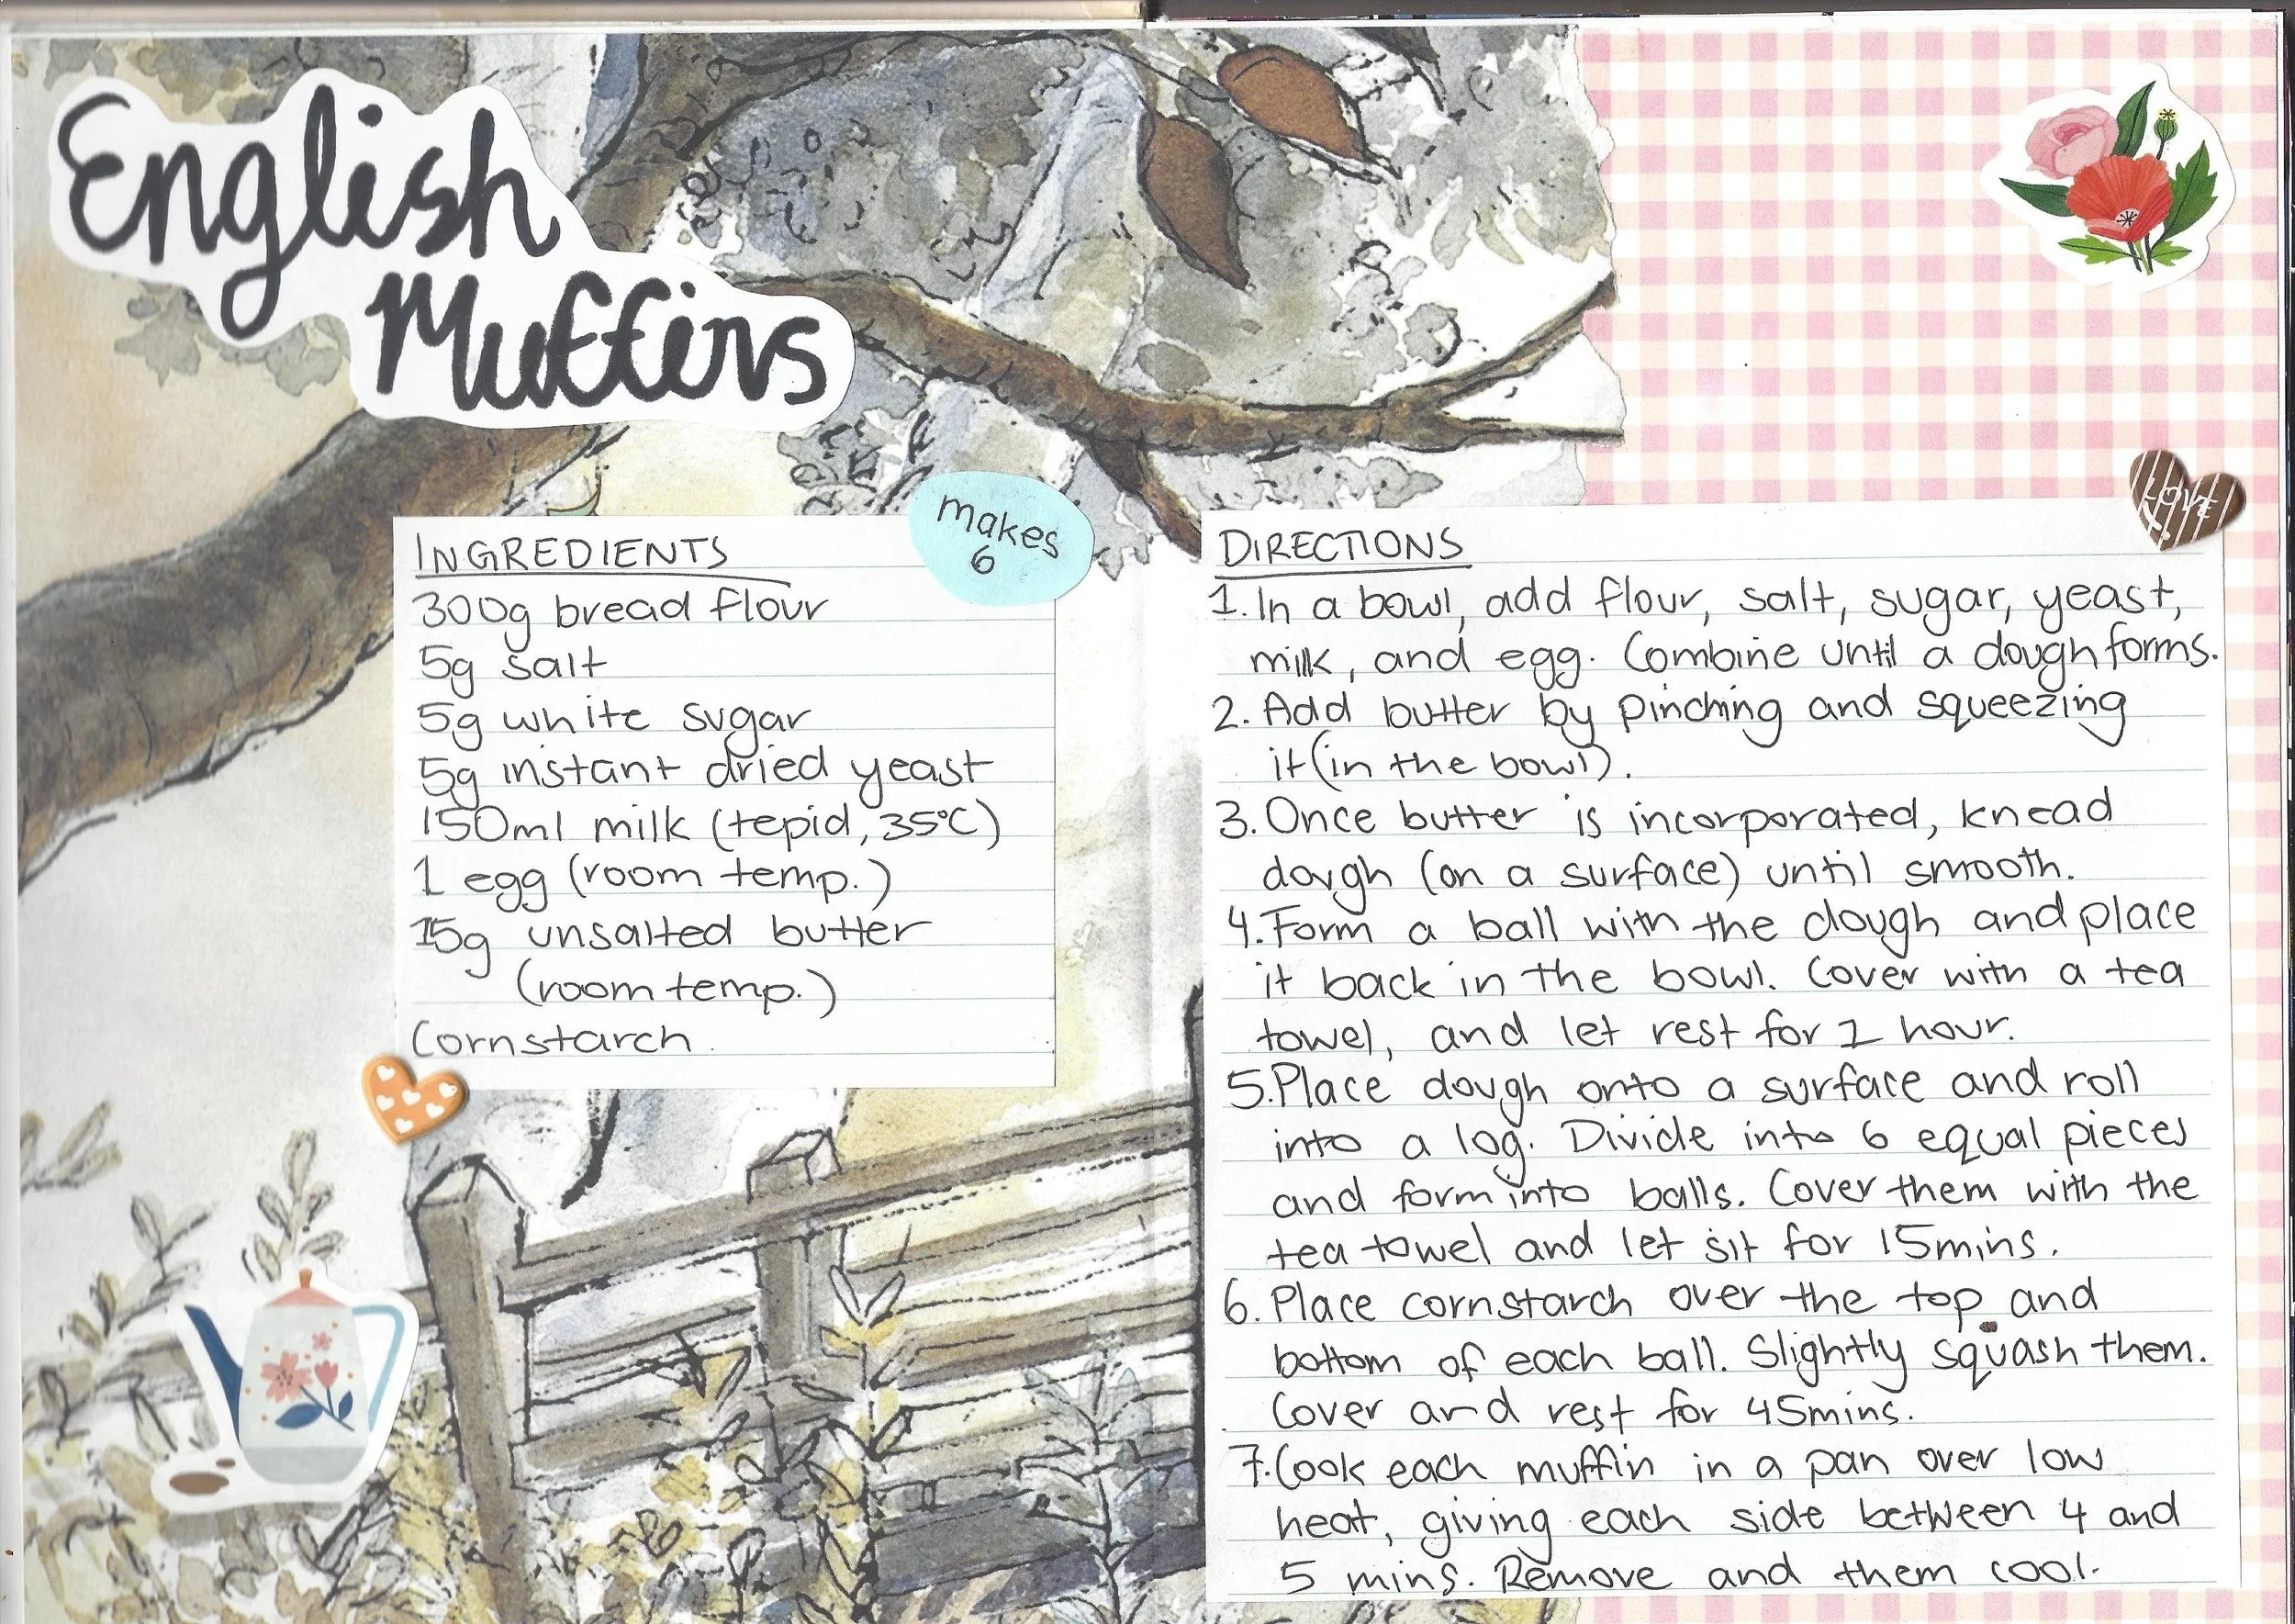 English
Muffins
makes
6
INGREDIENTS
300g bread flour
5g salt
5g white sugar
5g instant dried yeast
150ml milk (tepid, 35°C)
1 egg (room temp.)
15g unsalted butter
(room temp.)
Cornstarch
LOVE
DIRECTIONS
1. In a bowl, add flour, salt, sugar, yeast,
milk, and egg. Combine until a dough forms.
2. Add butter by pinching and squeezing
it (in the bowl).
3. Once butter is incorporated, knead
dough (on a surface) until smooth.
4. Form a ball with the dough and place
it back in the bowl. Cover with a tea
towel, and let rest for 1 hour.
5. Place dough onto a surface and roll
into a log. Divide into 6 equal pieces
and form into balls. Cover them with the
tea towel and let sit for 15mins.
6. Place cornstarch over the top and
bottom of each ball. Slightly squash them.
Cover and rest for 45mins.
7. Cook each muffin in a pan over low
heat, giving each side between 4 and
5 mins. Remove and them cool.